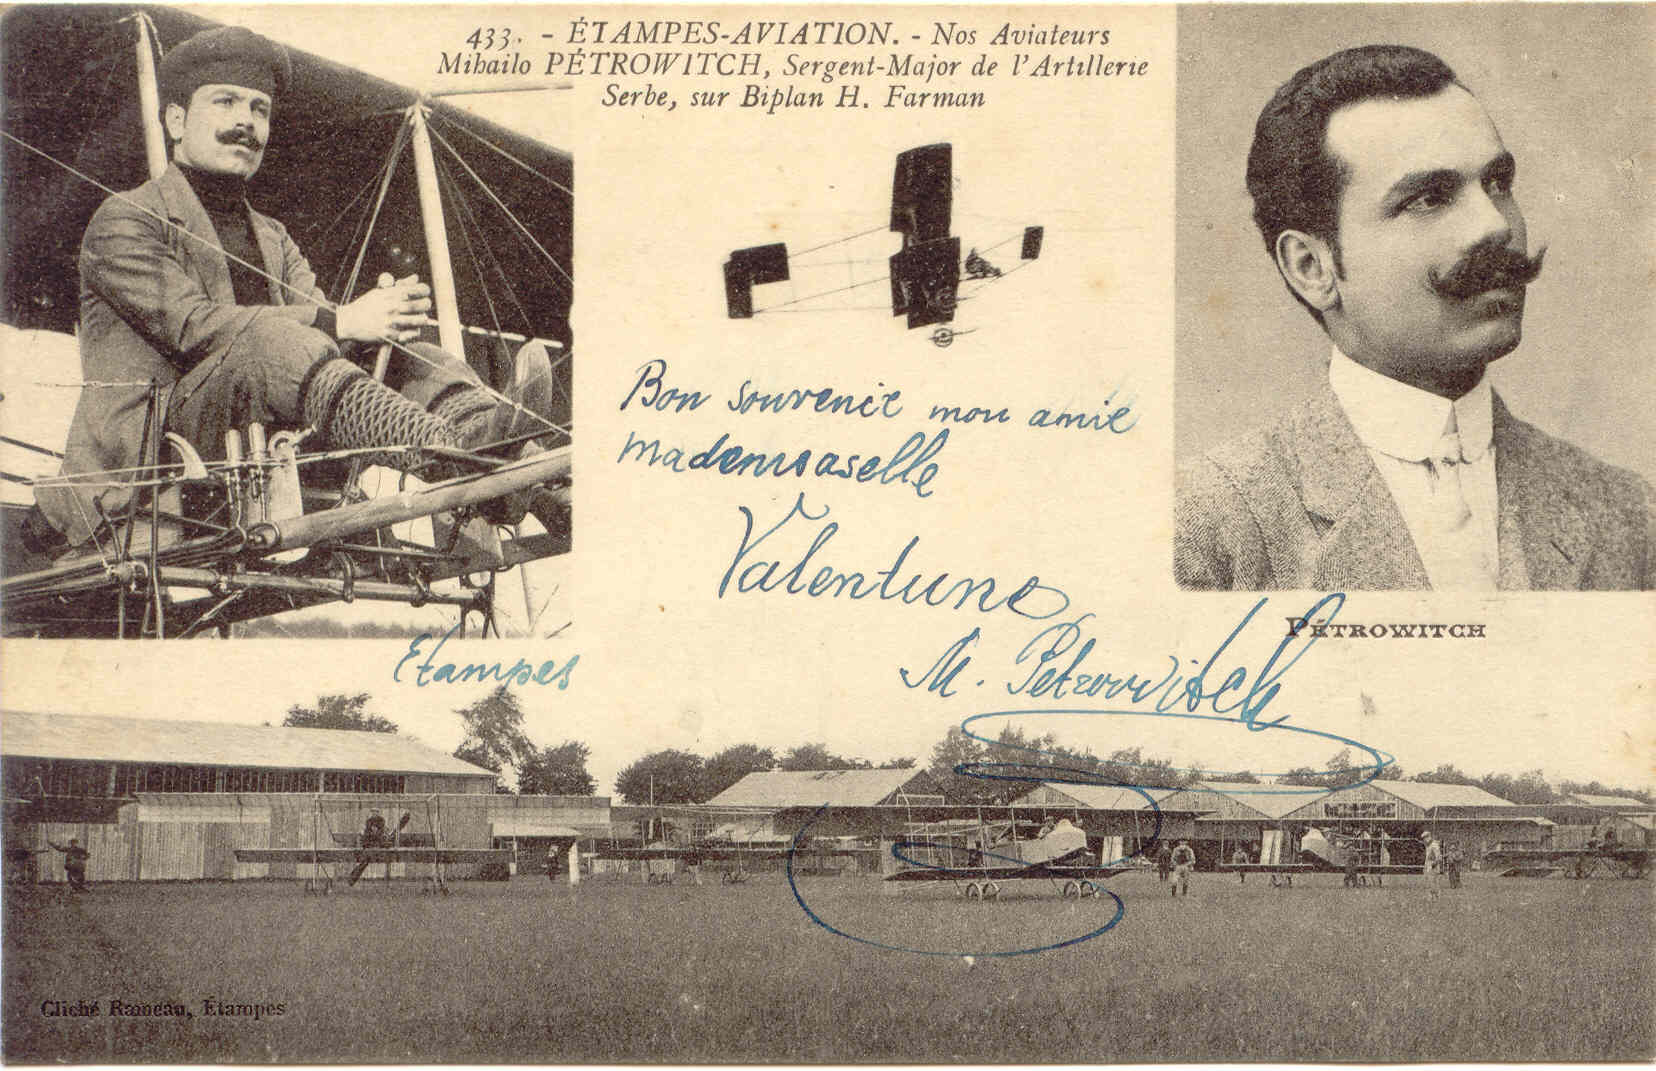 433. - ÉTAMPES-AVIATION. - Nos Aviateurs
Mihailo PÉTROWITCH, Sergent-Major de l'Artillerie
Serbe, sur Biplan H. Farman
Bon souvenir mon amie
mademoaselle
Valentune
M. Petrowitch
PÉTROWITCH
Etampes
Cliché Rameau, Étampes